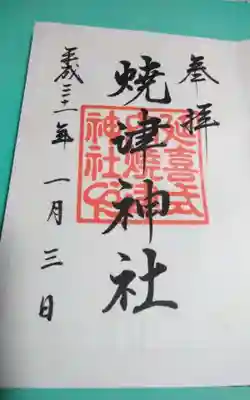 奉拝
燒津神社
平成三十一年一月三日
延喜式
内燒津
神社印